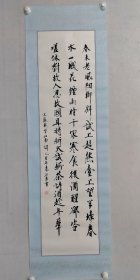 春未老風細柳斜斜試上超然臺上望半壕春
水一城花煙雨暗千家寒食後酒醒卻咨
嗟休對故人思故國且將新火試新茶詩酒趁年華